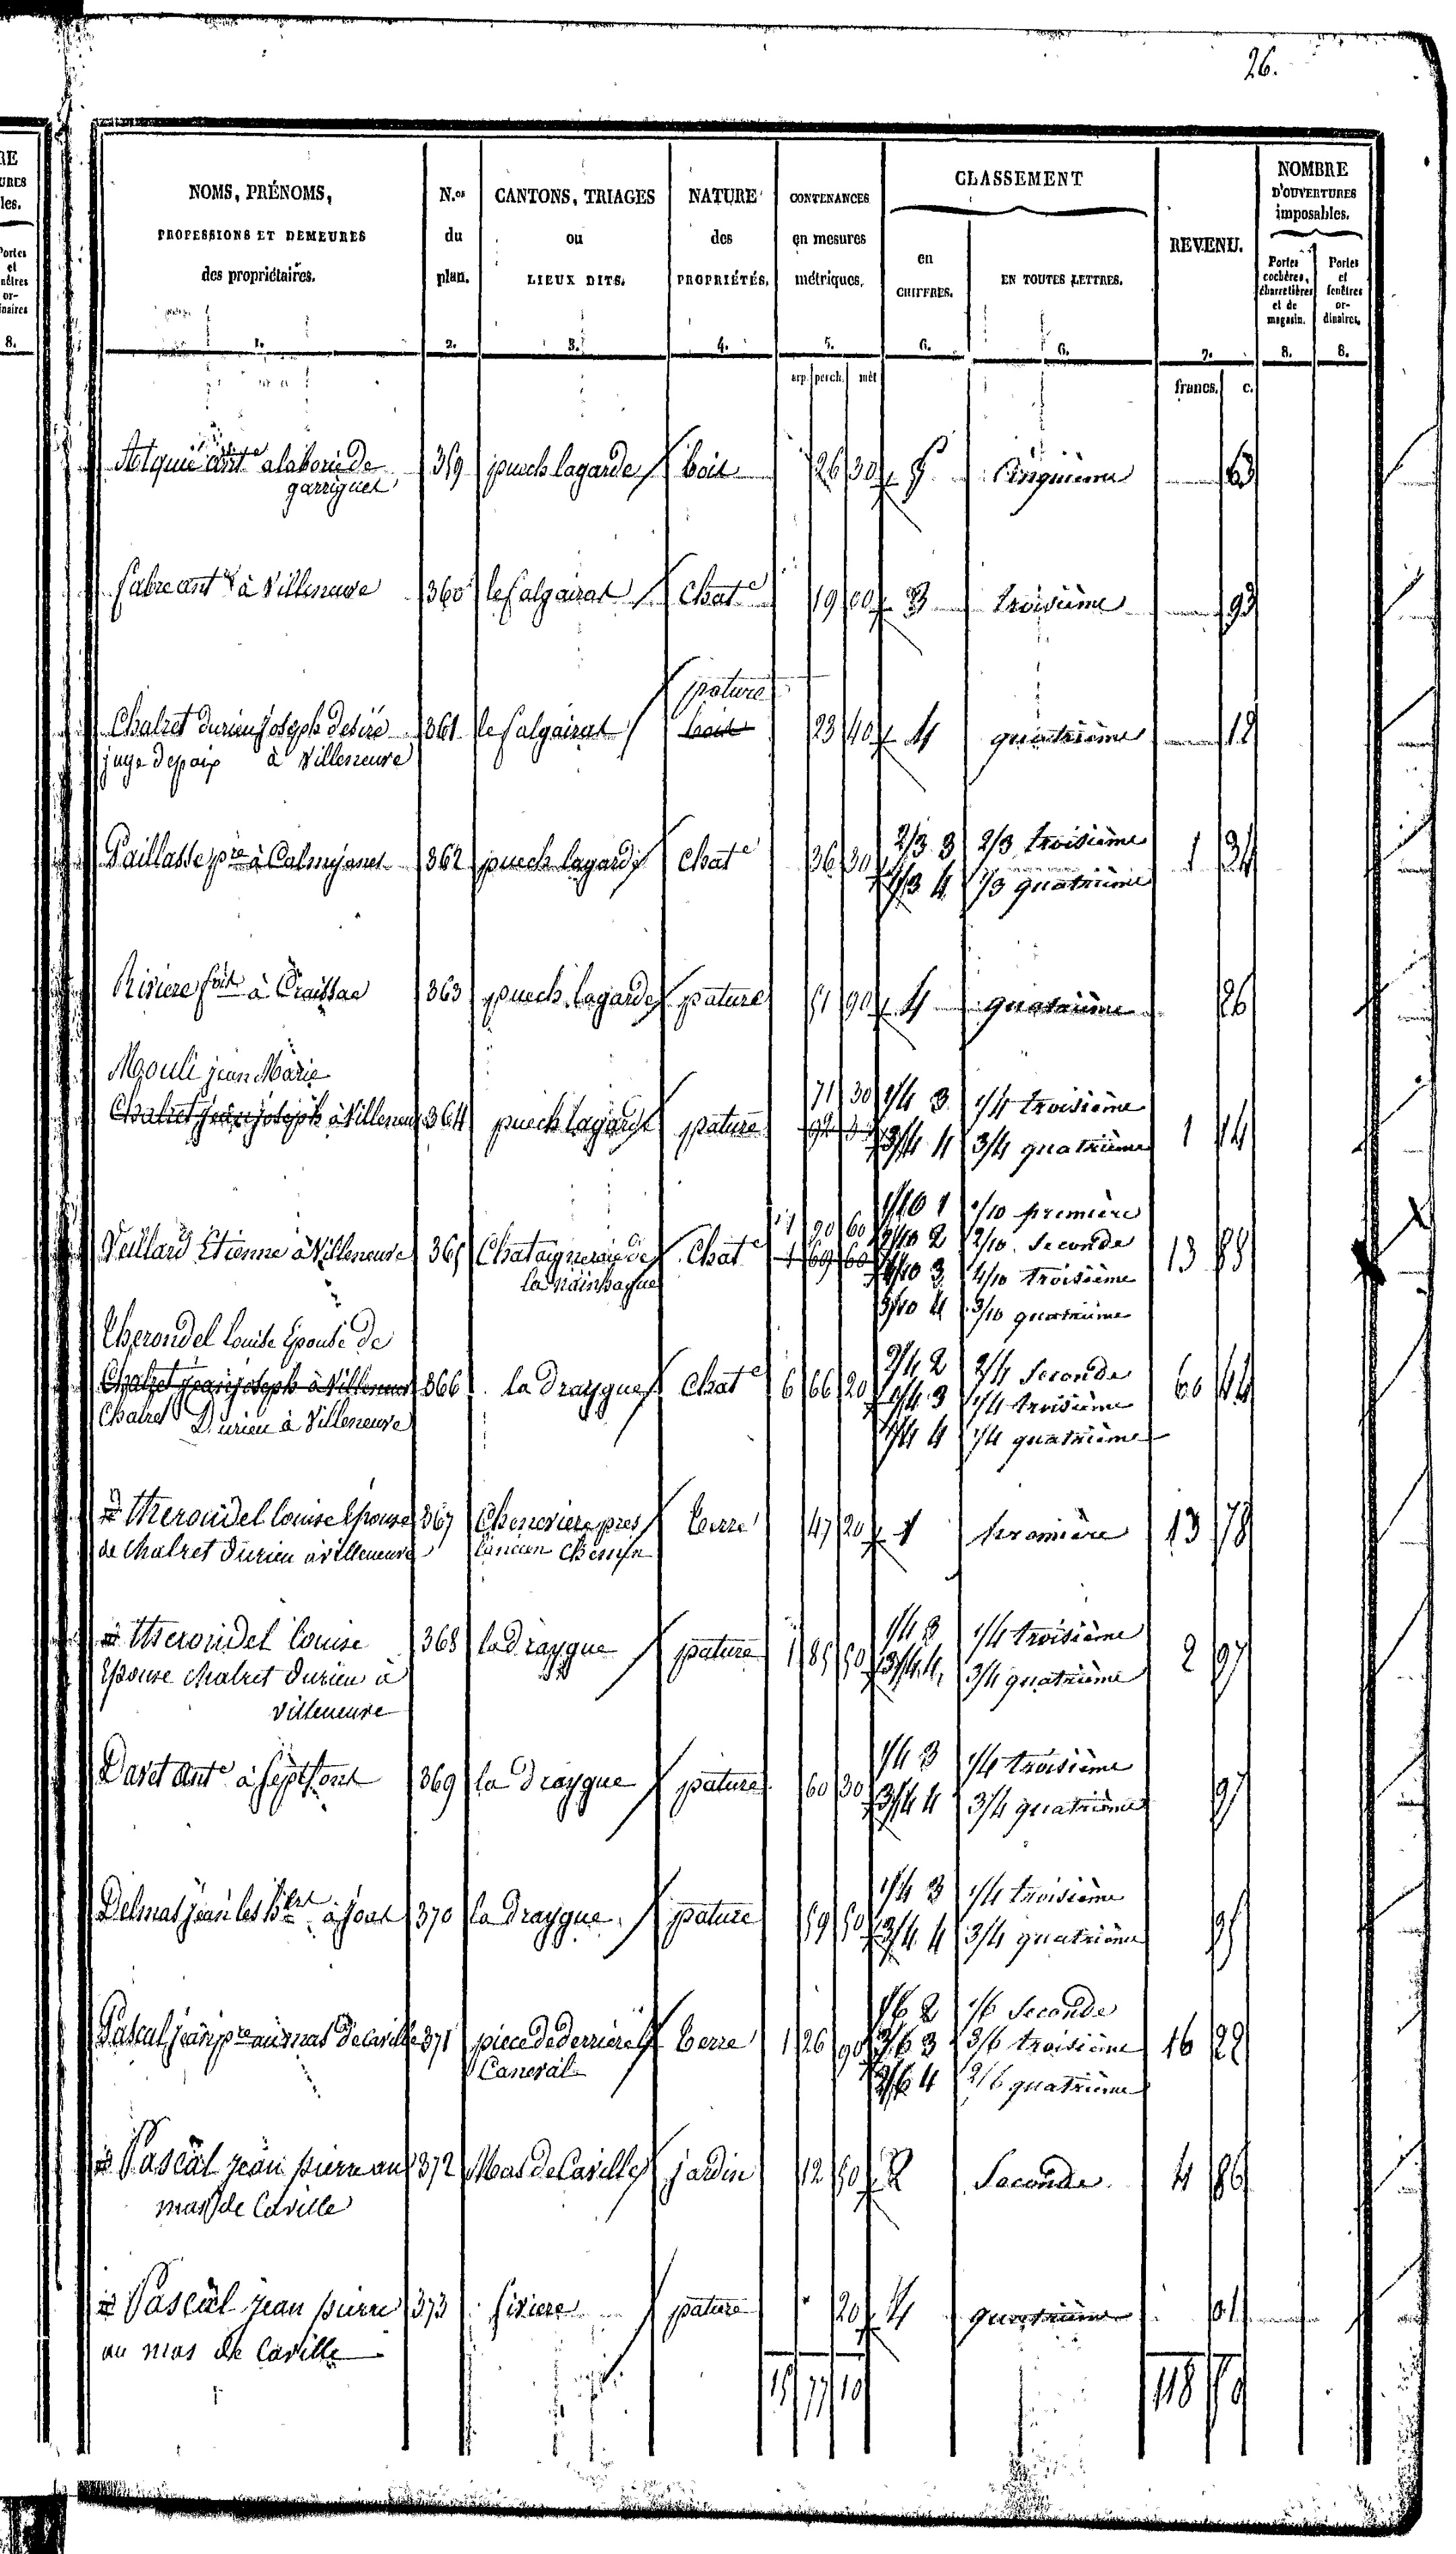 26.
NOMS, PRÉNOMS,
PROFESSIONS ET DEMEURES
des propriétaires.
1.
N.os
du
plan.
2.
CANTONS, TRIAGES
ou
LIEUX DITS.
3.
NATURE
des
PROPRIÉTÉS.
4.
CONTENANCES
en mesures
métriques.
5.
arp. perch. mèt
CLASSEMENT
en
CHIFFRES.
6.
EN TOUTES LETTRES.
6.
REVENU.
7.
francs. c.
NOMBRE
D'OUVERTURES
imposables.
Portes
cochères,
charretières
et de
magasin.
8.
Portes
et
fenêtres
or-
dinaires.
8.
359 puech lagarde bois 26 30 5 Cinquième 63
garrigues
fabre ant à Villeneuve 360 le falgairas Chate 19 00 3 troisième 93
pature
Chalret durieu joseph desiré 361 le falgairas bois 23 40 4 quatrième 12
juge depaix à Villeneuve
2/3 3 2/3 troisième
Paillasse pre à Calmejanes 362 puech lagarde Chate 36 30 1 34
1/3 4 1/3 quatrième
Riviere à Craissac 363 puech lagarde pature 51 90 4 quatrième 26
Mouli jean Marie
71 30 1/4 3 1/4 troisième
Chalret jean joseph à Villeneuve 364 puech lagarde pature 1 14
3/4 4 3/4 quatrième
1/10 1 1/10 première
1 90 60 2/10 2 2/10 Seconde
Veillard Etienne à Villeneuve 365 Chataigneraie de Chate 1 69 60 13 88
la 4/10 3 4/10 troisième
3/10 4 3/10 quatrième
Therondel louise Epouse de
2/4 2 2/4 Seconde
Chalret jean joseph à Villeneuve 366 la draygue Chate 6 66 20 1/4 3 1/4 troisième 60 44
Chalret Durieu à Villeneuve
1/4 4 1/4 quatrième
Therondel louise Epouse 367 Cheneviere près terre 47 20 1 première 13 78
de chalret durieu à villeneuve l'ancien Chemin
Therondel louise 368 la draygue pature 1 85 50 1/4 3 1/4 troisième 2 97
Epouse chalret durieu à 3/4 4 3/4 quatrième
villeneuve
1/4 3 1/4 troisième
Davet ante à Septfons 369 la draygue pature 60 30 97
3/4 4 3/4 quatrième
1/4 3 1/4 troisième
Delmas jean les hers à 370 la draygue pature 59 50 95
3/4 4 3/4 quatrième
1/6 2 1/6 Seconde
Pascal jean pre au mas de Caville 371 piece de derriere le terre 1 26 90 3/6 3 3/6 troisième 16 22
Caneval
2/6 4 2/6 quatrième
Pascal jean pierre au 372 Mas de Caville jardin 12 50 2 Seconde 4 86
mas de Caville
Pascal jean pierre 373 pature 20 4 quatrième 01
au mas de Caville
15 77 10 118